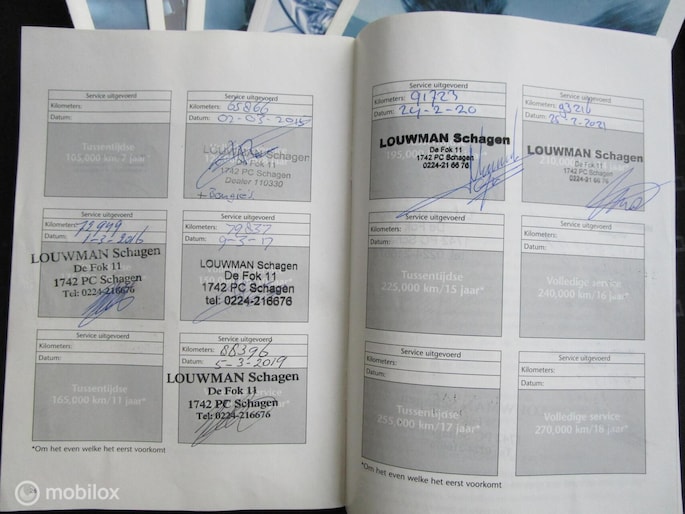 Service uitgevoerd
Kilometers:
Datum:
Tussentijdse
105,000 km, 7 jaar*
Service uitgevoerd
Kilometers: 65866
Datum: 02-03-2015
1742 PC Schagen
Dealer 110330
+ Bougie's
Service uitgevoerd
Kilometers: 72999
Datum: 1-3-2016
LOUWMAN Schagen
De Fok 11
1742 PC Schagen
Tel: 0224-216676
Service uitgevoerd
Kilometers: 79837
Datum: 9-3-17
LOUWMAN Schagen
De Fok 11
1742 PC Schagen
tel: 0224-216676
Service uitgevoerd
Kilometers:
Datum:
Tussentijdse
165,000 km/11 jaar*
Service uitgevoerd
Kilometers: 88396
Datum: 5-3-2019
LOUWMAN Schagen
De Fok 11
1742 PC Schagen
Tel: 0224-216676
*Om het even welke het eerst voorkomt
Service uitgevoerd
Kilometers: 91723
Datum: 24-2-20
LOUWMAN Schagen
De Fok 11
1742 PC Schagen
0224-21 66 76
Service uitgevoerd
Kilometers: 93216
Datum:
LOUWMAN Schagen
De Fok 11
1742 PC Schagen
0224-21 66 76
Service uitgevoerd
Kilometers:
Datum:
Tussentijdse
225,000 km/15 jaar*
Service uitgevoerd
Kilometers:
Datum:
Volledige service
240,000 km/16 jaar*
Service uitgevoerd
Kilometers:
Datum:
Tussentijdse
255,000 km/17 jaar*
Service uitgevoerd
Kilometers:
Datum:
Volledige service
270,000 km/18 jaar*
*Om het even welke het eerst voorkomt
mobilox